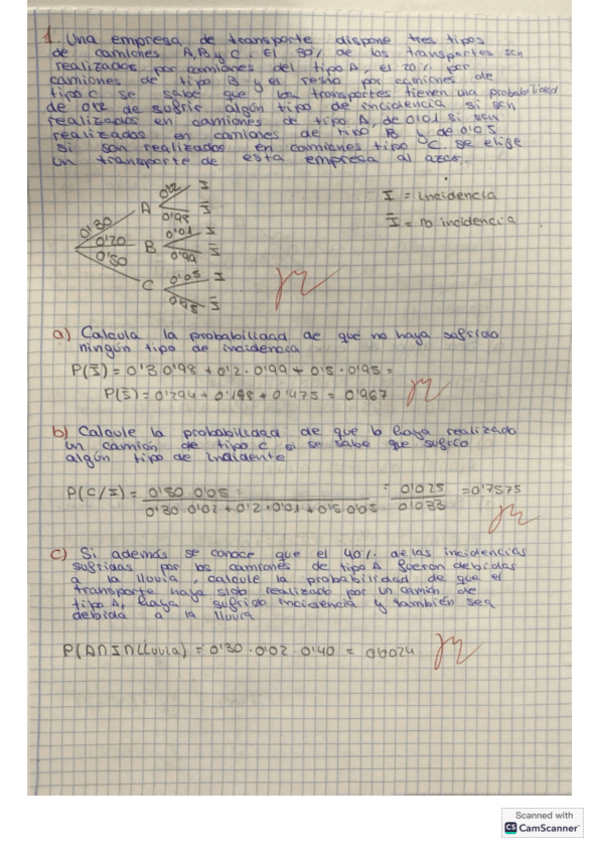 1. Una empresa de transporte dispone tres tipos
de camiones A, B y C. El 30% de los transportes son
realizados por camiones del tipo A, el 20% por
camiones de tipo B y el resto por camiones de
tipo C. se sabe que los transportes tienen una probabilidad
de 0'02 de sufrir algún tipo de incidencia si son
realizados en camiones de tipo A, de 0'01 si son
realizados en camiones de tipo B y de 0'05
si son realizados en camiones tipo C. se elige
un transporte de esta empresa al azar.
0'30 A 0'02 I
0'98 Ī
0'20 B 0'01 I
0'99 Ī
0'50 C 0'05 I
0'95 Ī
I = incidencia
Ī = no incidencia
a) Calcula la probabilidad de que no haya sufrido
ningún tipo de incidencia
P(Ī) = 0'3 0'98 + 0'2 · 0'99 + 0'5 · 0'95 =
P(Ī) = 0'294 + 0'198 + 0'475 = 0'967
b) Calcule la probabilidad de que lo haya realizado
un camión de tipo C si se sabe que sufrio
algún tipo de incidente
P(C/I) = 0'50 · 0'05 = 0'025 = 0'7575
0'30 · 0'02 + 0'2 · 0'01 + 0'5 · 0'05 0'033
c) Si además se conoce que el 40% de las incidencias
sufridas por los camiones de tipo A fueron debidas
a la lluvia, calcule la probabilidad de que el
transporte haya sido realizado por un camión de
tipo A, haya sufrido incidencia y también sea
debida a la lluvia
P(A∩I∩Lluvia) = 0'30 · 0'02 · 0'40 = 0'0024
Scanned with
CS CamScanner